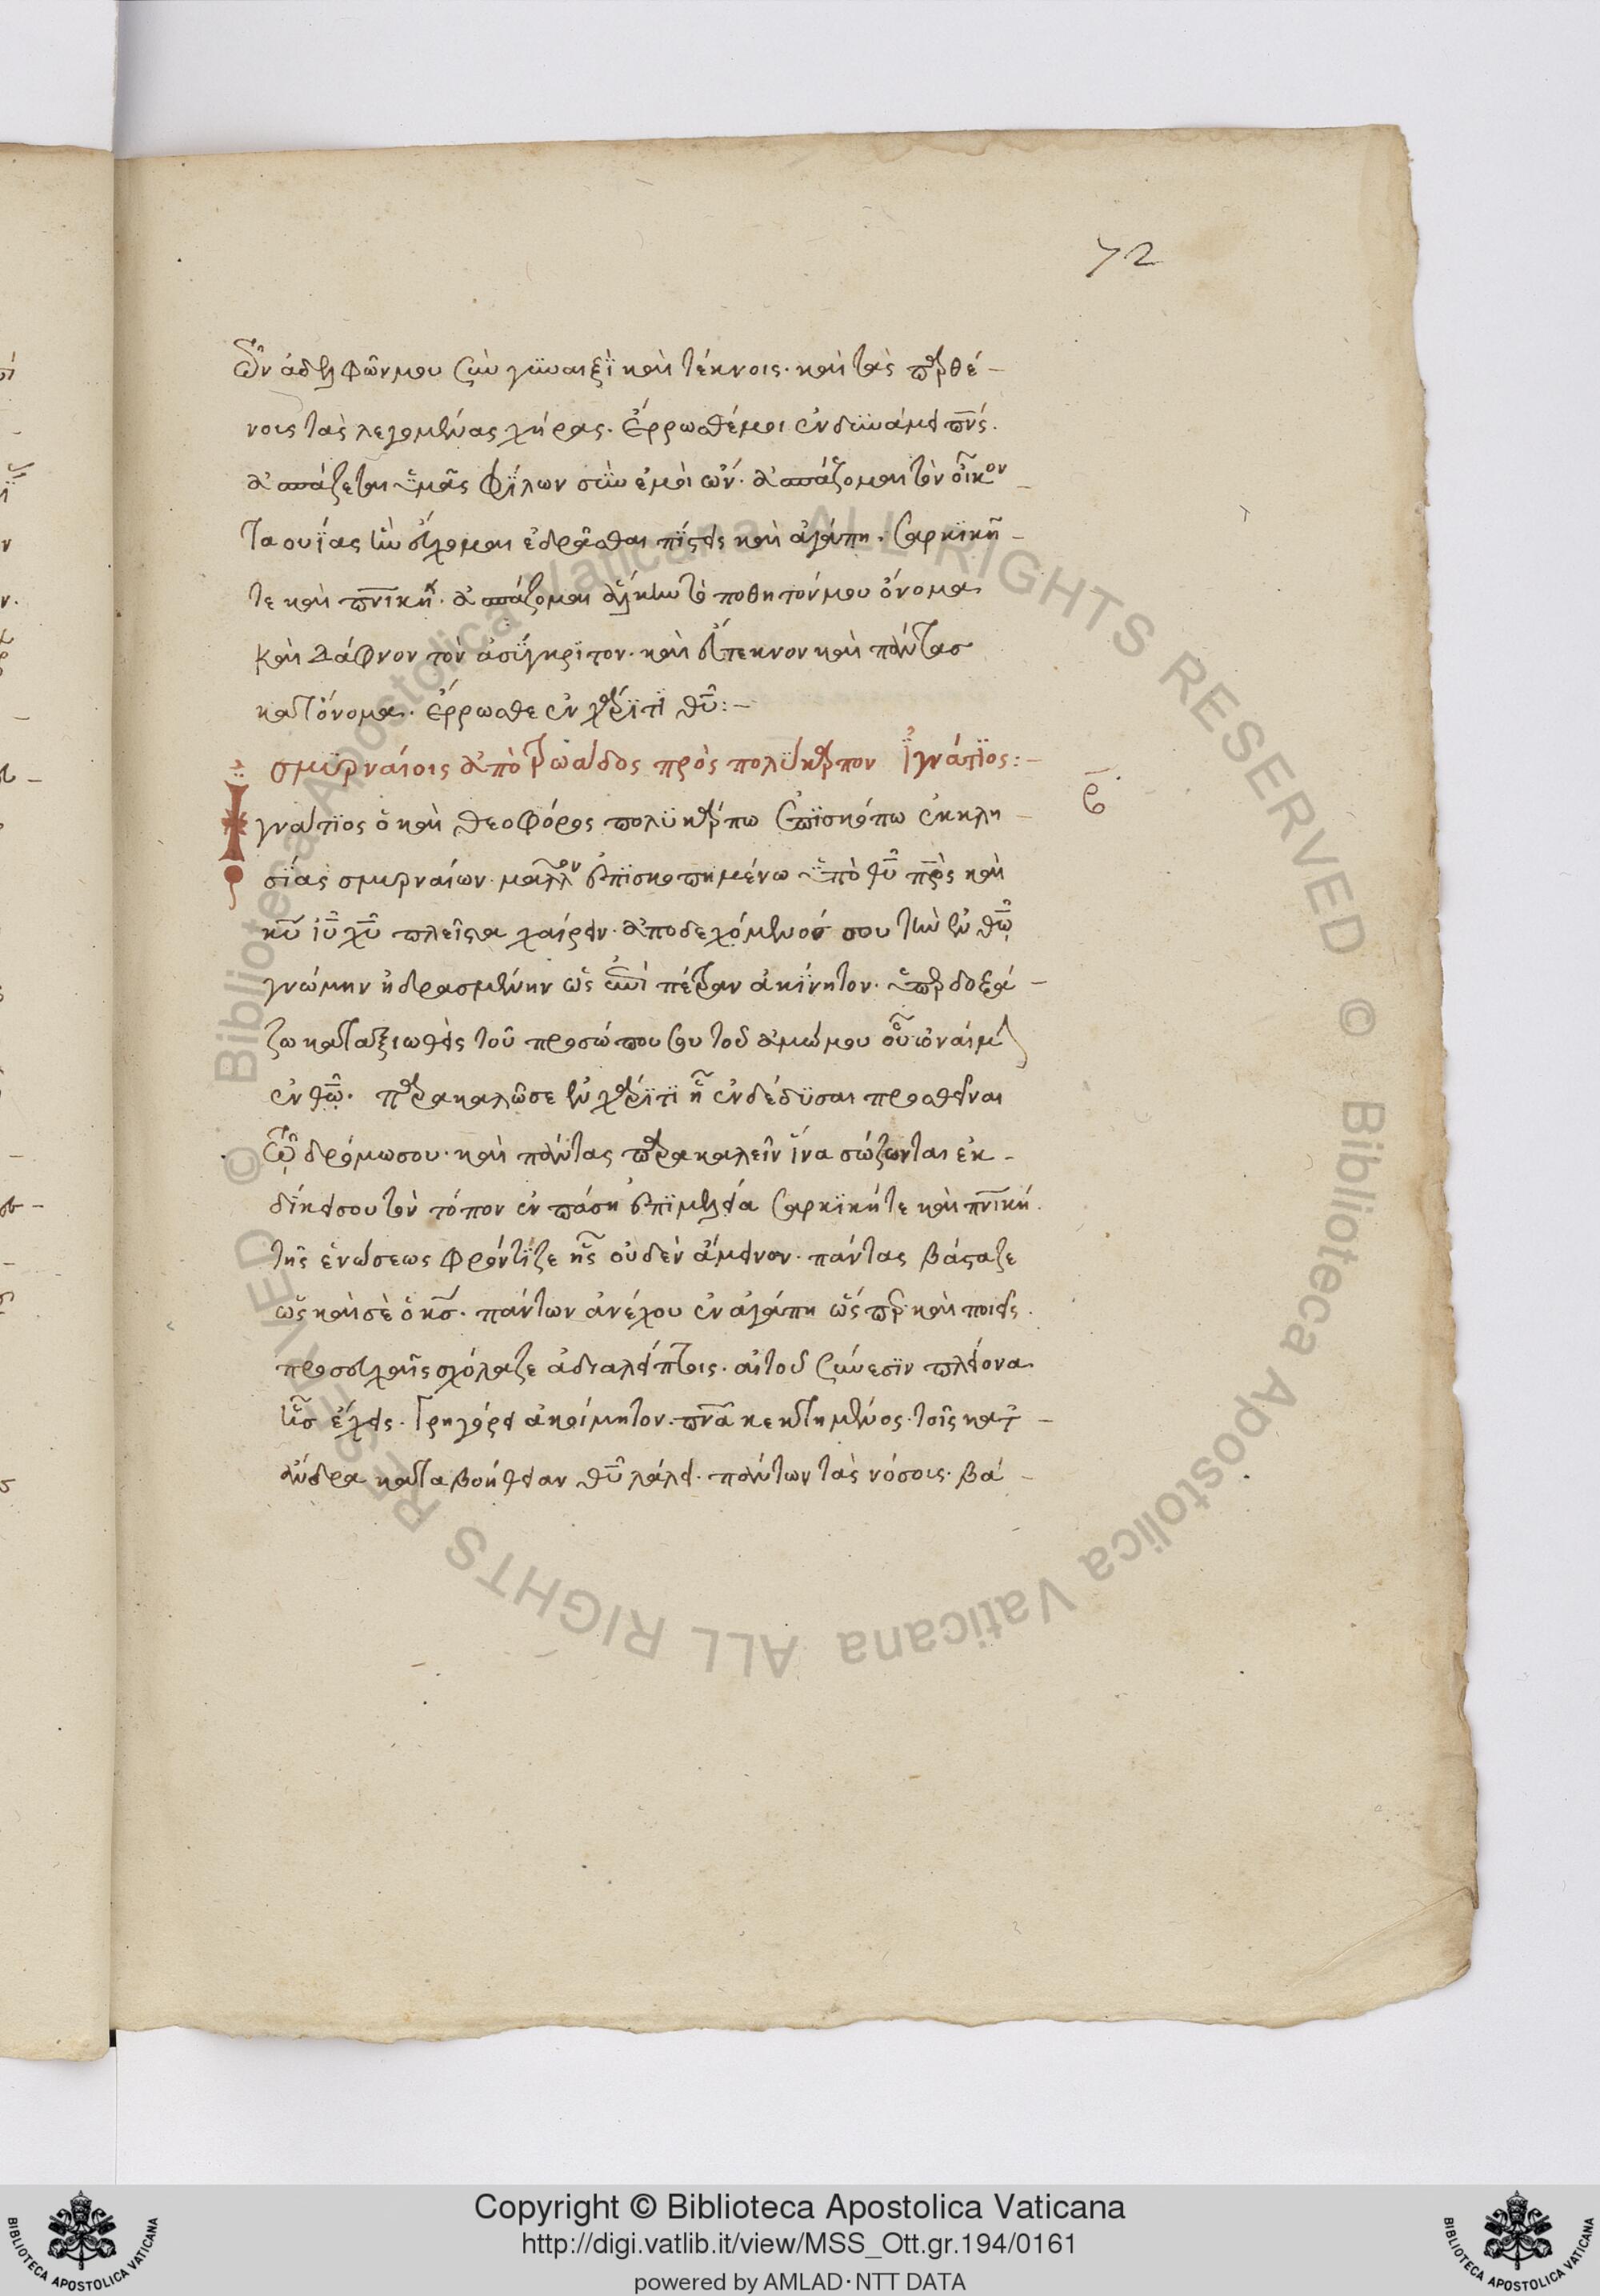 72
τῶν ἀδελφῶν μου σὺν γϋναιξὶ καὶ τέκνοις· καὶ τὰς παρθέ-
νοις τὰς λεγομένας χήρας. ἔρρωσθέ μοι ἐν δϋνάμει πνς.
ἀσπάζεται ὑμᾶς φίλων σὺν ἐμοὶ ὤν. ἀσπάζομαι τὸν οἶκον
ταουΐας ἣν εὔχομαι ἑδρᾶσθαι πίστει καὶ ἀγάπη. σαρκικῆ
τε καὶ πνικῆ. ἀσπάζομαι ἄλκην τὸ ποθητόν μου ὄνομα
καὶ Δάφνον τὸν ἀσύγκρϊτον. καὶ εὔτεκνον καὶ πάντασ
κατ' ὄνομα. ἔρρωσθε ἐν χάρϊτϊ θῦ:-
σμϋρναίοις ἀπὸ τρωάδος πρὸς πολύκαρπον ϊγνάτϊος:-
Ἰγνάτϊος ὁ καὶ θεοφόρος πολϋκάρπω ἐπϊσκόπω ἐκκλη
σΐας σμυρναίων. μᾶλλον ἐπϊσκοπημένω ὑπὸ θῦ πρς καὶ
κυ ιυ χυ πλεῖστα χαίρειν. ἀποδεχόμενός σου τὴν ἐν θω
γνώμην ἡδρασμένην ὡς ἐπὶ πέτραν ἀκίνητον. ὑπερδοξά
ζω καταξιωθεὶς τοῦ προσώπου σου τοῦ ἀμώμου οὗ ὀναίμην
ἐν θω. παρακαλῶ σε ἐν χάρϊτϊ ἧ ἐνδέδϋσαι προσθεῖναι
τῷ δρόμω σου. καὶ πάντας παρακαλεῖν ἵνα σώζωνται ἐκ-
δίκει σου τὸν τόπον ἐν πάση ἐπϊμελεία σαρκϊκῇ τε καὶ πνικῇ.
τῆς ἑνώσεως φρόντϊζε ἧς οὐδὲν ἄμεινον. πάντας βάσταζε
ὡς καὶ σὲ ὁ κσ. πάντων ἀνέχου ἐν ἀγάπη ὥσπερ καὶ ποιεῖς.
προσευχαῖς σχόλαζε ἀδιαλείπτοις. αἰτοῦ σύνεσϊν πλείονα
ἧσ ἔχεις. Γρηγόρει ἀκοίμητον πνα κεκτημένος. τοῖς κατ'
ἄνδρα κατὰ βοήθειαν θῦ λάλει. πάντων τὰς νόσοις. βά
ε
Copyright © Biblioteca Apostolica Vaticana
http://digi.vatlib.it/view/MSS_Ott.gr.194/0161
powered by AMLAD·NTT DATA
BIBLIOTECA APOSTOLICA VATICANA
BIBLIOTECA APOSTOLICA VATICANA
© Biblioteca Apostolica Vaticana ALL RIGHTS RESERVED
© Biblioteca Apostolica Vaticana ALL RIGHTS RESERVED